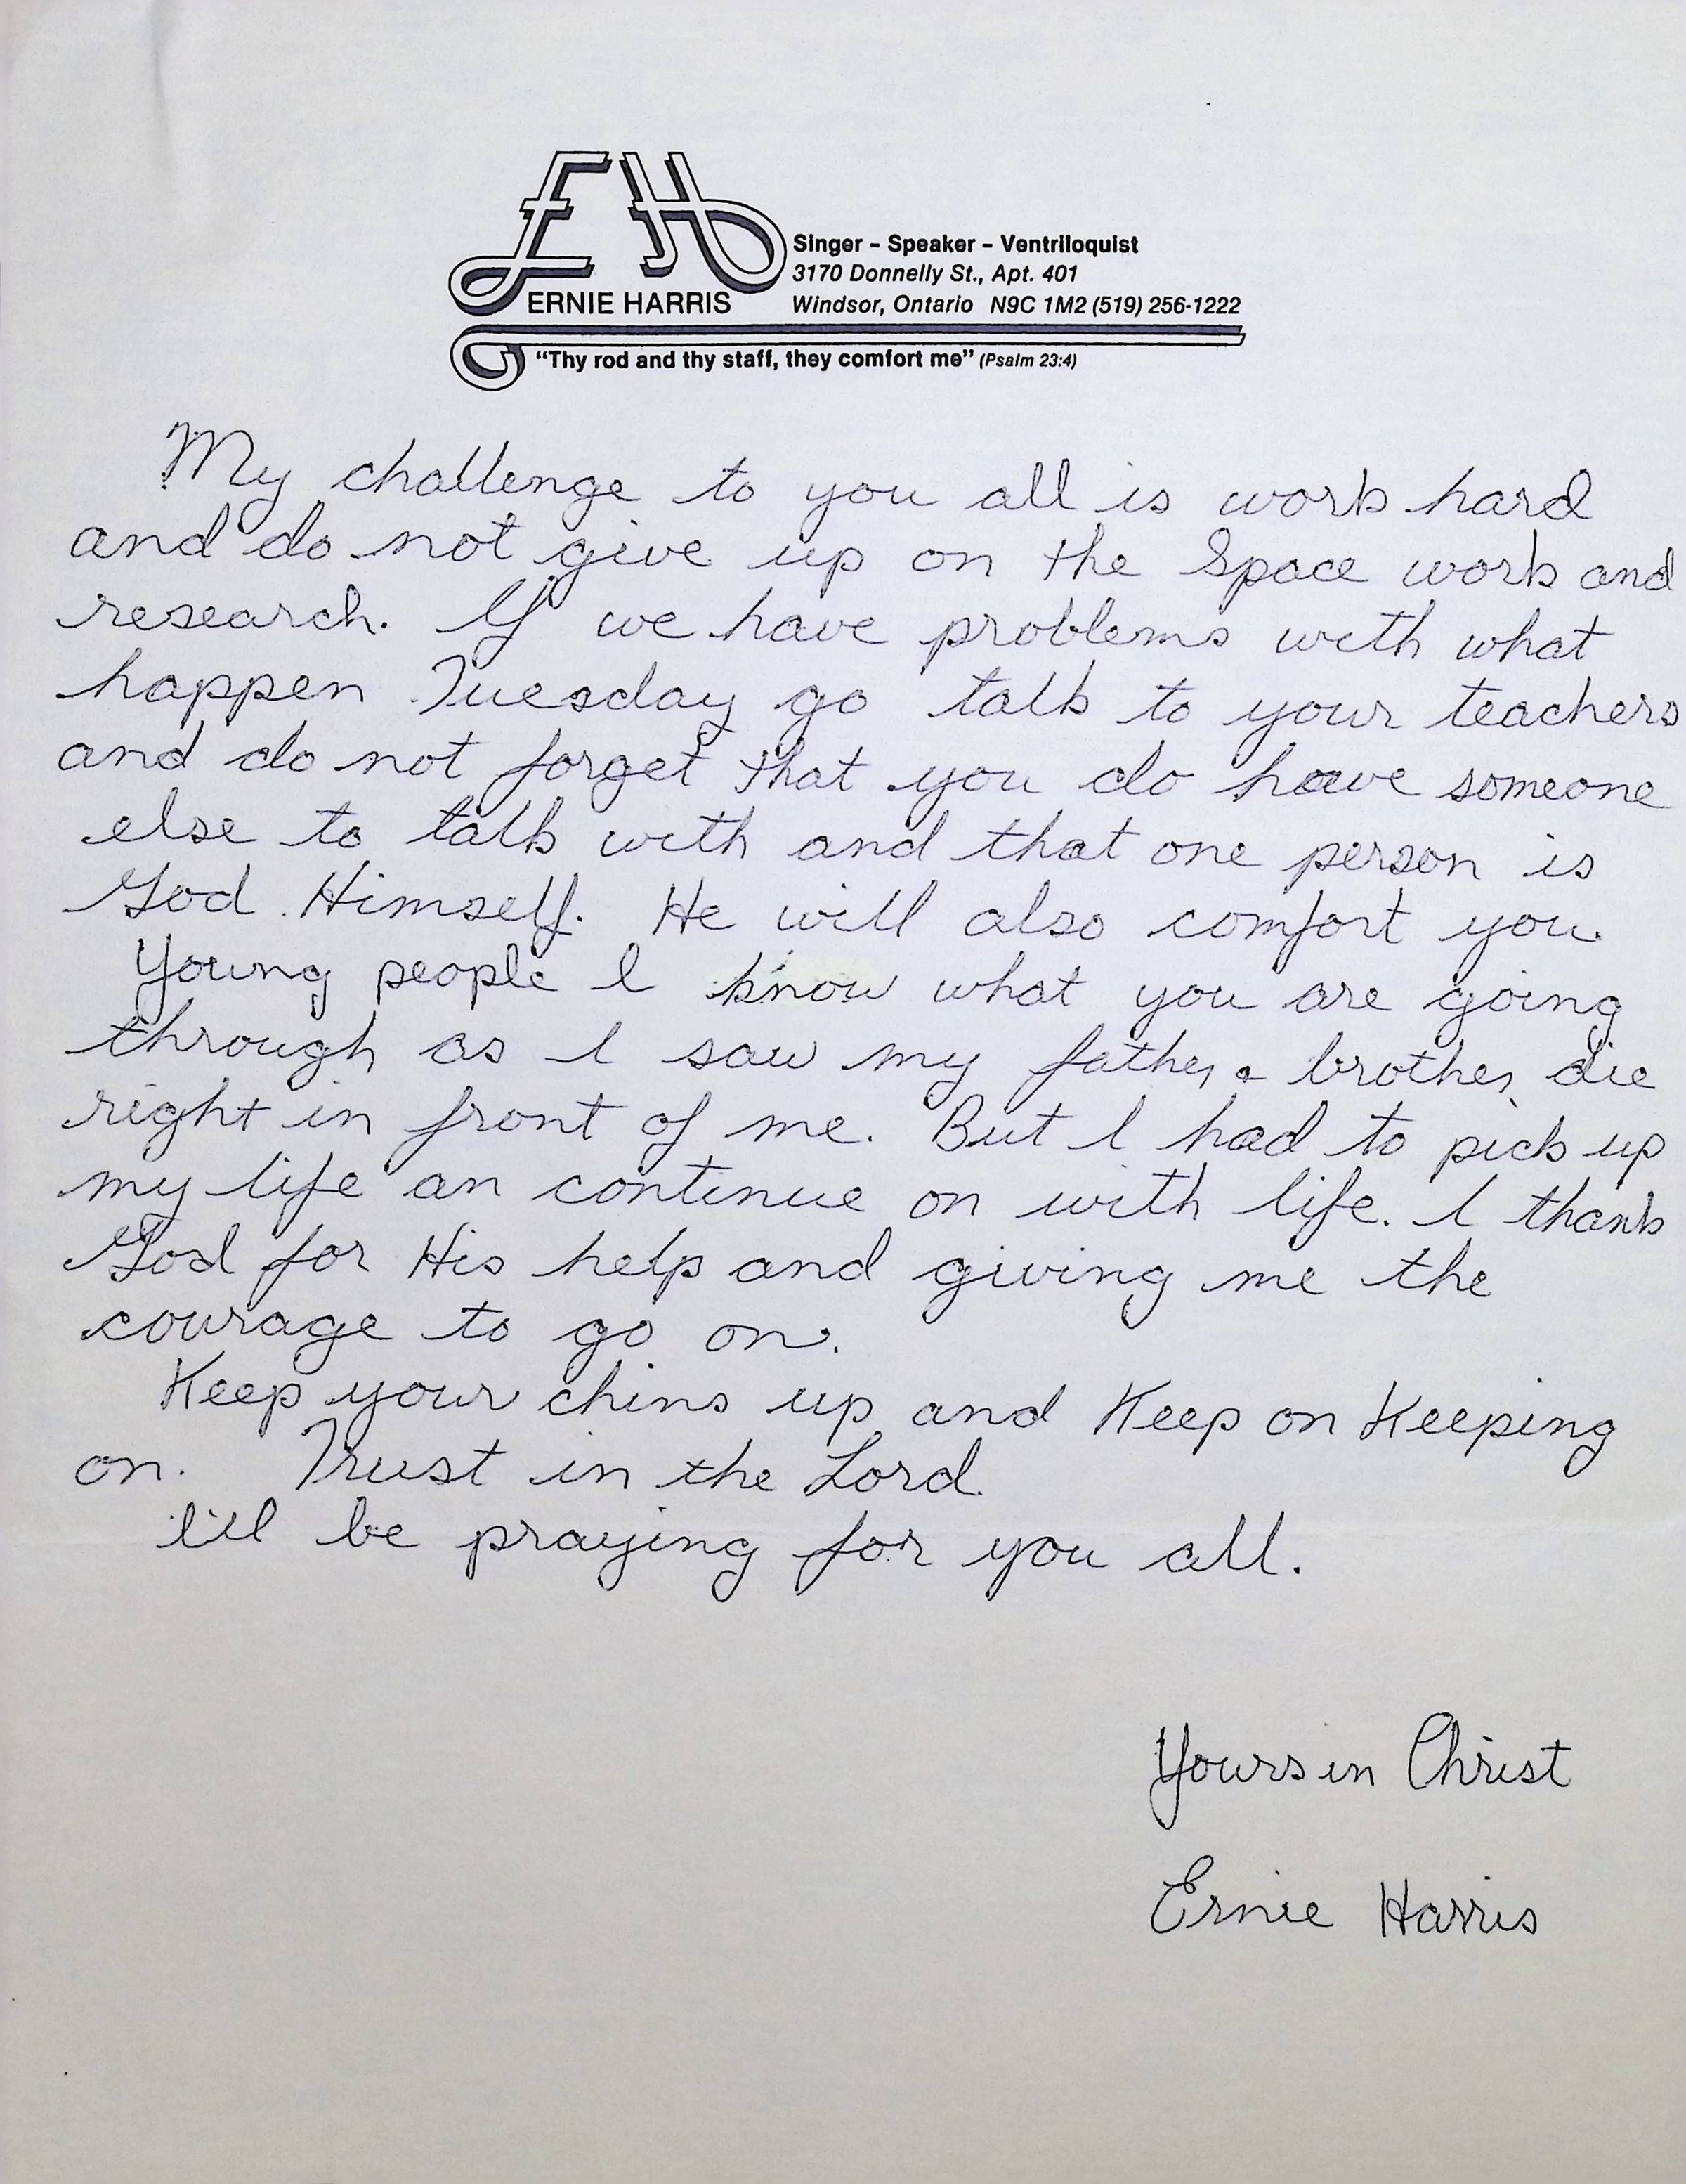 EH
Singer - Speaker - Ventriloquist
3170 Donnelly St., Apt. 401
ERNIE HARRIS Windsor, Ontario N9C 1M2 (519) 256-1222
"Thy rod and thy staff, they comfort me" (Psalm 23:4)
My challenge to you all is work hard
and do not give up on the Space work and
research. If we have problems with what
happen Tuesday go talk to your teachers
and do not forget that you do have someone
else to talk with and that one person is
God Himself. He will also comfort you.
Young people I know what you are going
through as I saw my father & brother die
right in front of me. But I had to pick up
my life an continue on with life. I thank
God for His help and giving me the
courage to go on.
Keep your chins up and Keep on Keeping
on. Trust in the Lord.
I'll be praying for you all.
Yours in Christ
Ernie Harris